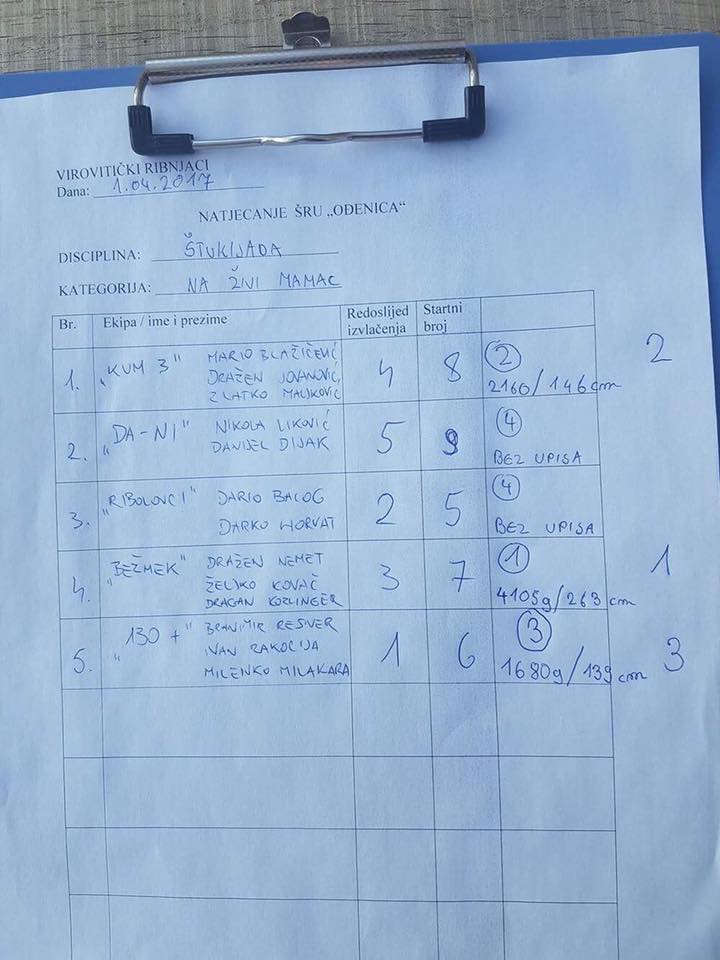 VIROVITIČKI RIBNJACI
Dana: 1.04.2017
NATJECANJE ŠRU „OĐENICA“
DISCIPLINA: ŠTUKIJADA
KATEGORIJA: NA ŽIVI MAMAC
Br. Ekipa / ime i prezime Redoslijed izvlačenja Startni broj
1. „KUM 3" MARIO BLAŽIČEVIĆ 4 8 2 2
DRAŽEN JOVANOVIĆ, 2160/146cm
ZLATKO MALJKOVIĆ
2. „DA-NI" NIKOLA LIKOVIĆ 5 9 4
DANIJEL DIJAK BEZ UPISA
3. „RIBOLOVCI" DARIO BALOG 2 5 4
DARKO HORVAT BEZ UPISA
4. „BEŽMEK" DRAŽEN NEMET 3 7 1 1
ŽELJKO KOVAČ 4105g/263 cm
DRAGAN KOZLINGER
5. „130 +" BRANIMIR RESNER 1 6 3 3
IVAN RAKOCIJA 1680g/139 cm
MILENKO MILAKARA